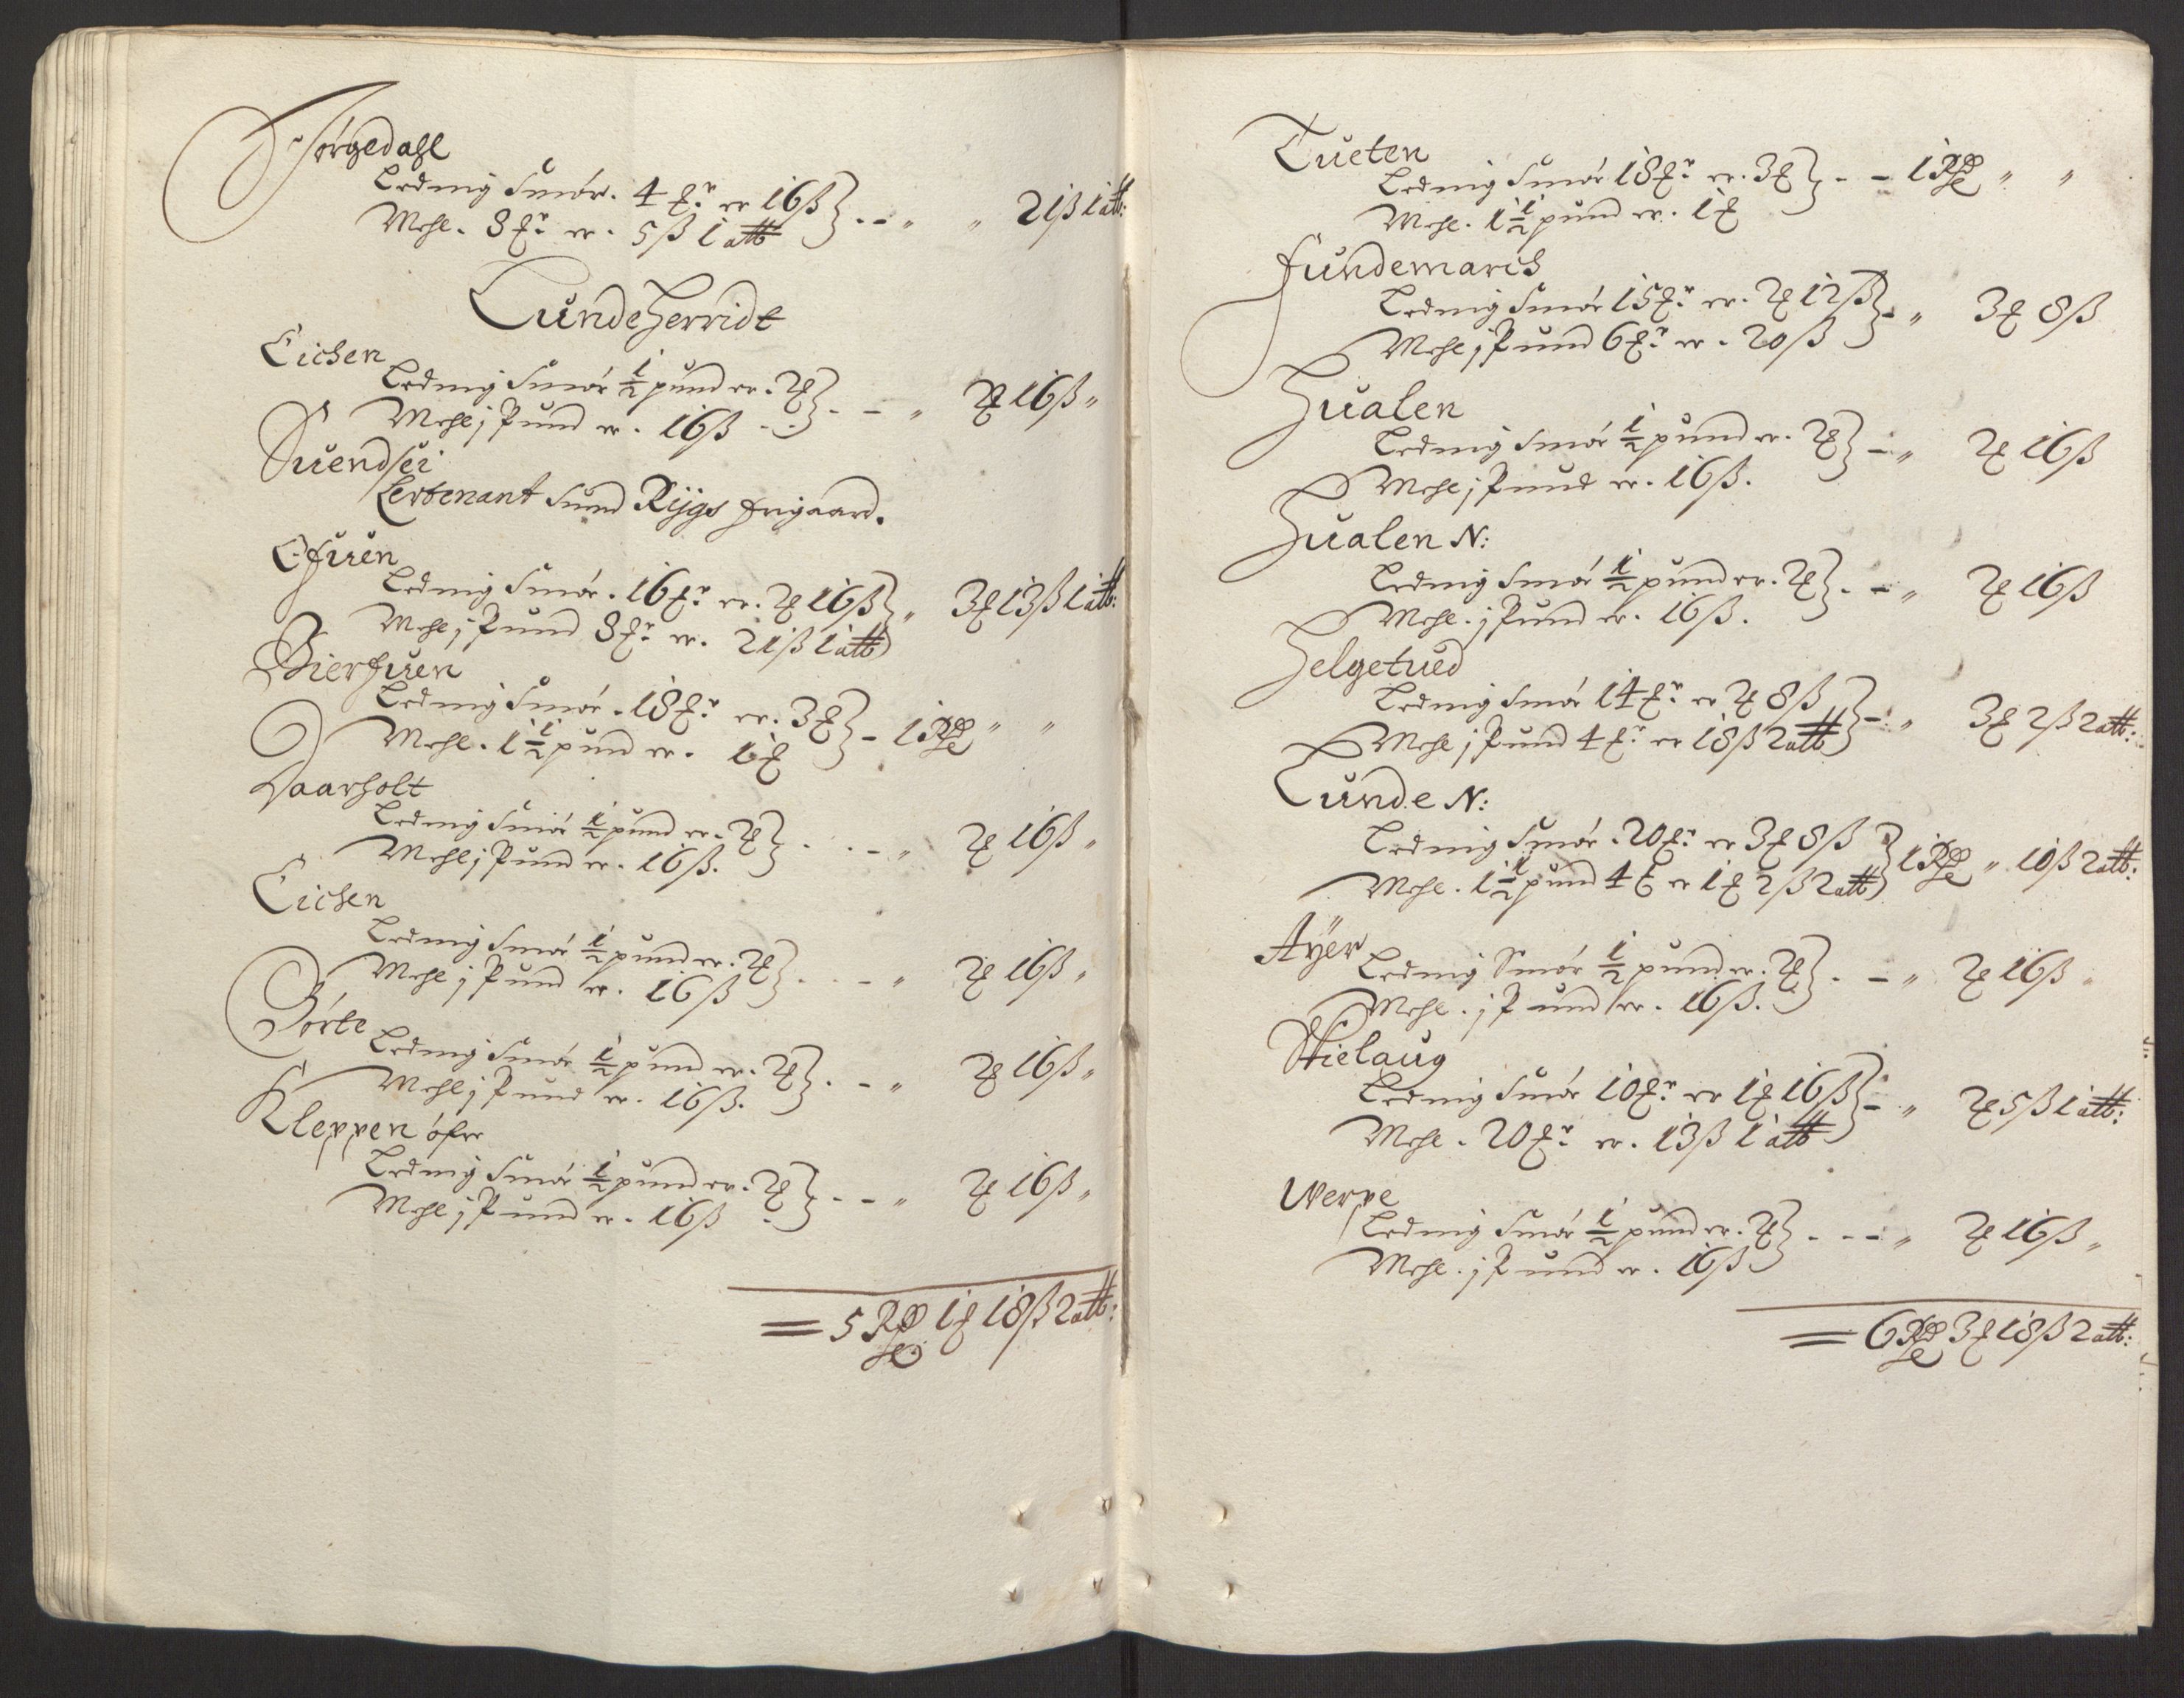 Jørgedahl
Leding Smør. 4 ℔r er 16 ß } - - „ „ 21 ß 1 alb:
Mehl. 8 ℔r er. 5 ß 1 alb
Lunde Herridt
Eichen
Leding Smør ½ pund er. 2 ℔ } - - „ 2 ℔ 16 ß „
Mehl j Pund er. 16 ß
Suendsei
Leutenant Rijgs frigaard.
Ofuren
Leding Smør. 16 ℔r er. 2 ℔ 16 ß } „ 3 ℔ 13 ß 1 alb:
Mehl j Pund 8 ℔r er. 21 ß 1 alb
Bierfuen
Leding Smør. 18 ℔r er. 3 ℔ } - 1 Rd „ „
Mehl. 1½ pund er. 1 ℔
Daarholt
Leding Smør ½ pund er. 2 ℔ } - - „ 2 ℔ 16 ß „
Mehl j Pund er. 16 ß.
Eichen
Leding Smør ½ pund er. 2 ℔ } - - „ 2 ℔ 16 ß „
Mehl j Pund er. 16 ß
Børte
Leding Smør ½ pund er. 2 ℔ } - - „ 2 ℔ 16 ß „
Mehl j Pund er. 16 ß.
Kleppen øfre
Leding Smør ½ pund er. 2 ℔ } - - „ 2 ℔ 16 ß „
Mehl j Pund er. 16 ß
= 5 Rd 1 ℔ 18 ß 2 alb:
Tueten
Leding Smør 18 ℔r er. 3 ℔ } - - 1 Rd „ „
Mehl. 1½ pund er. 1 ℔
Fundemarch
Leding Smør 15 ℔r er. 2 ℔ 12 ß } - „ 3 ℔ 8 ß
Mehl j Pund 6 ℔r er. 20 ß
Hualen
Leding Smør ½ pund er. 2 ℔ } - „ 2 ℔ 16 ß
Mehl j Pund er. 16 ß.
Hualen N:
Leding Smør ½ pund er. 2 ℔ } - - „ 2 ℔ 16 ß
Mehl. j Pund er. 16 ß.
Helgetued
Leding Smør 14 ℔r er 2 ℔ 8 ß } - „ 3 ℔ 2 ß 2 alb:
Mehl j Pund 4 ℔r er 18 ß 2 alb
Lunde N:
Leding Smør. 20 ℔r er 3 ℔ 8 ß } 1 Rd „ 10 ß 2 alb:
Mehl. 1½ pund 4 ℔ er 1 ℔ 2 ß 2 alb
Aÿer
Leding Smør ½ pund er. 2 ℔ } - - „ 2 ℔ 16 ß „
Mehl. j Pund er. 16 ß.
Skielaug
Leding Smør 10 ℔r er 1 ℔ 16 ß } - „ 2 ℔ 5 ß 1 alb:
Mehl. 20 ℔r er. 13 ß 1 alb
Werpe
Leding Smør ½ pund er. 2 ℔ } - - - „ 2 ℔ 16 ß „
Mehl. j Pund er. 16 ß
= 6 Rd 3 ℔ 18 ß 2 alb: